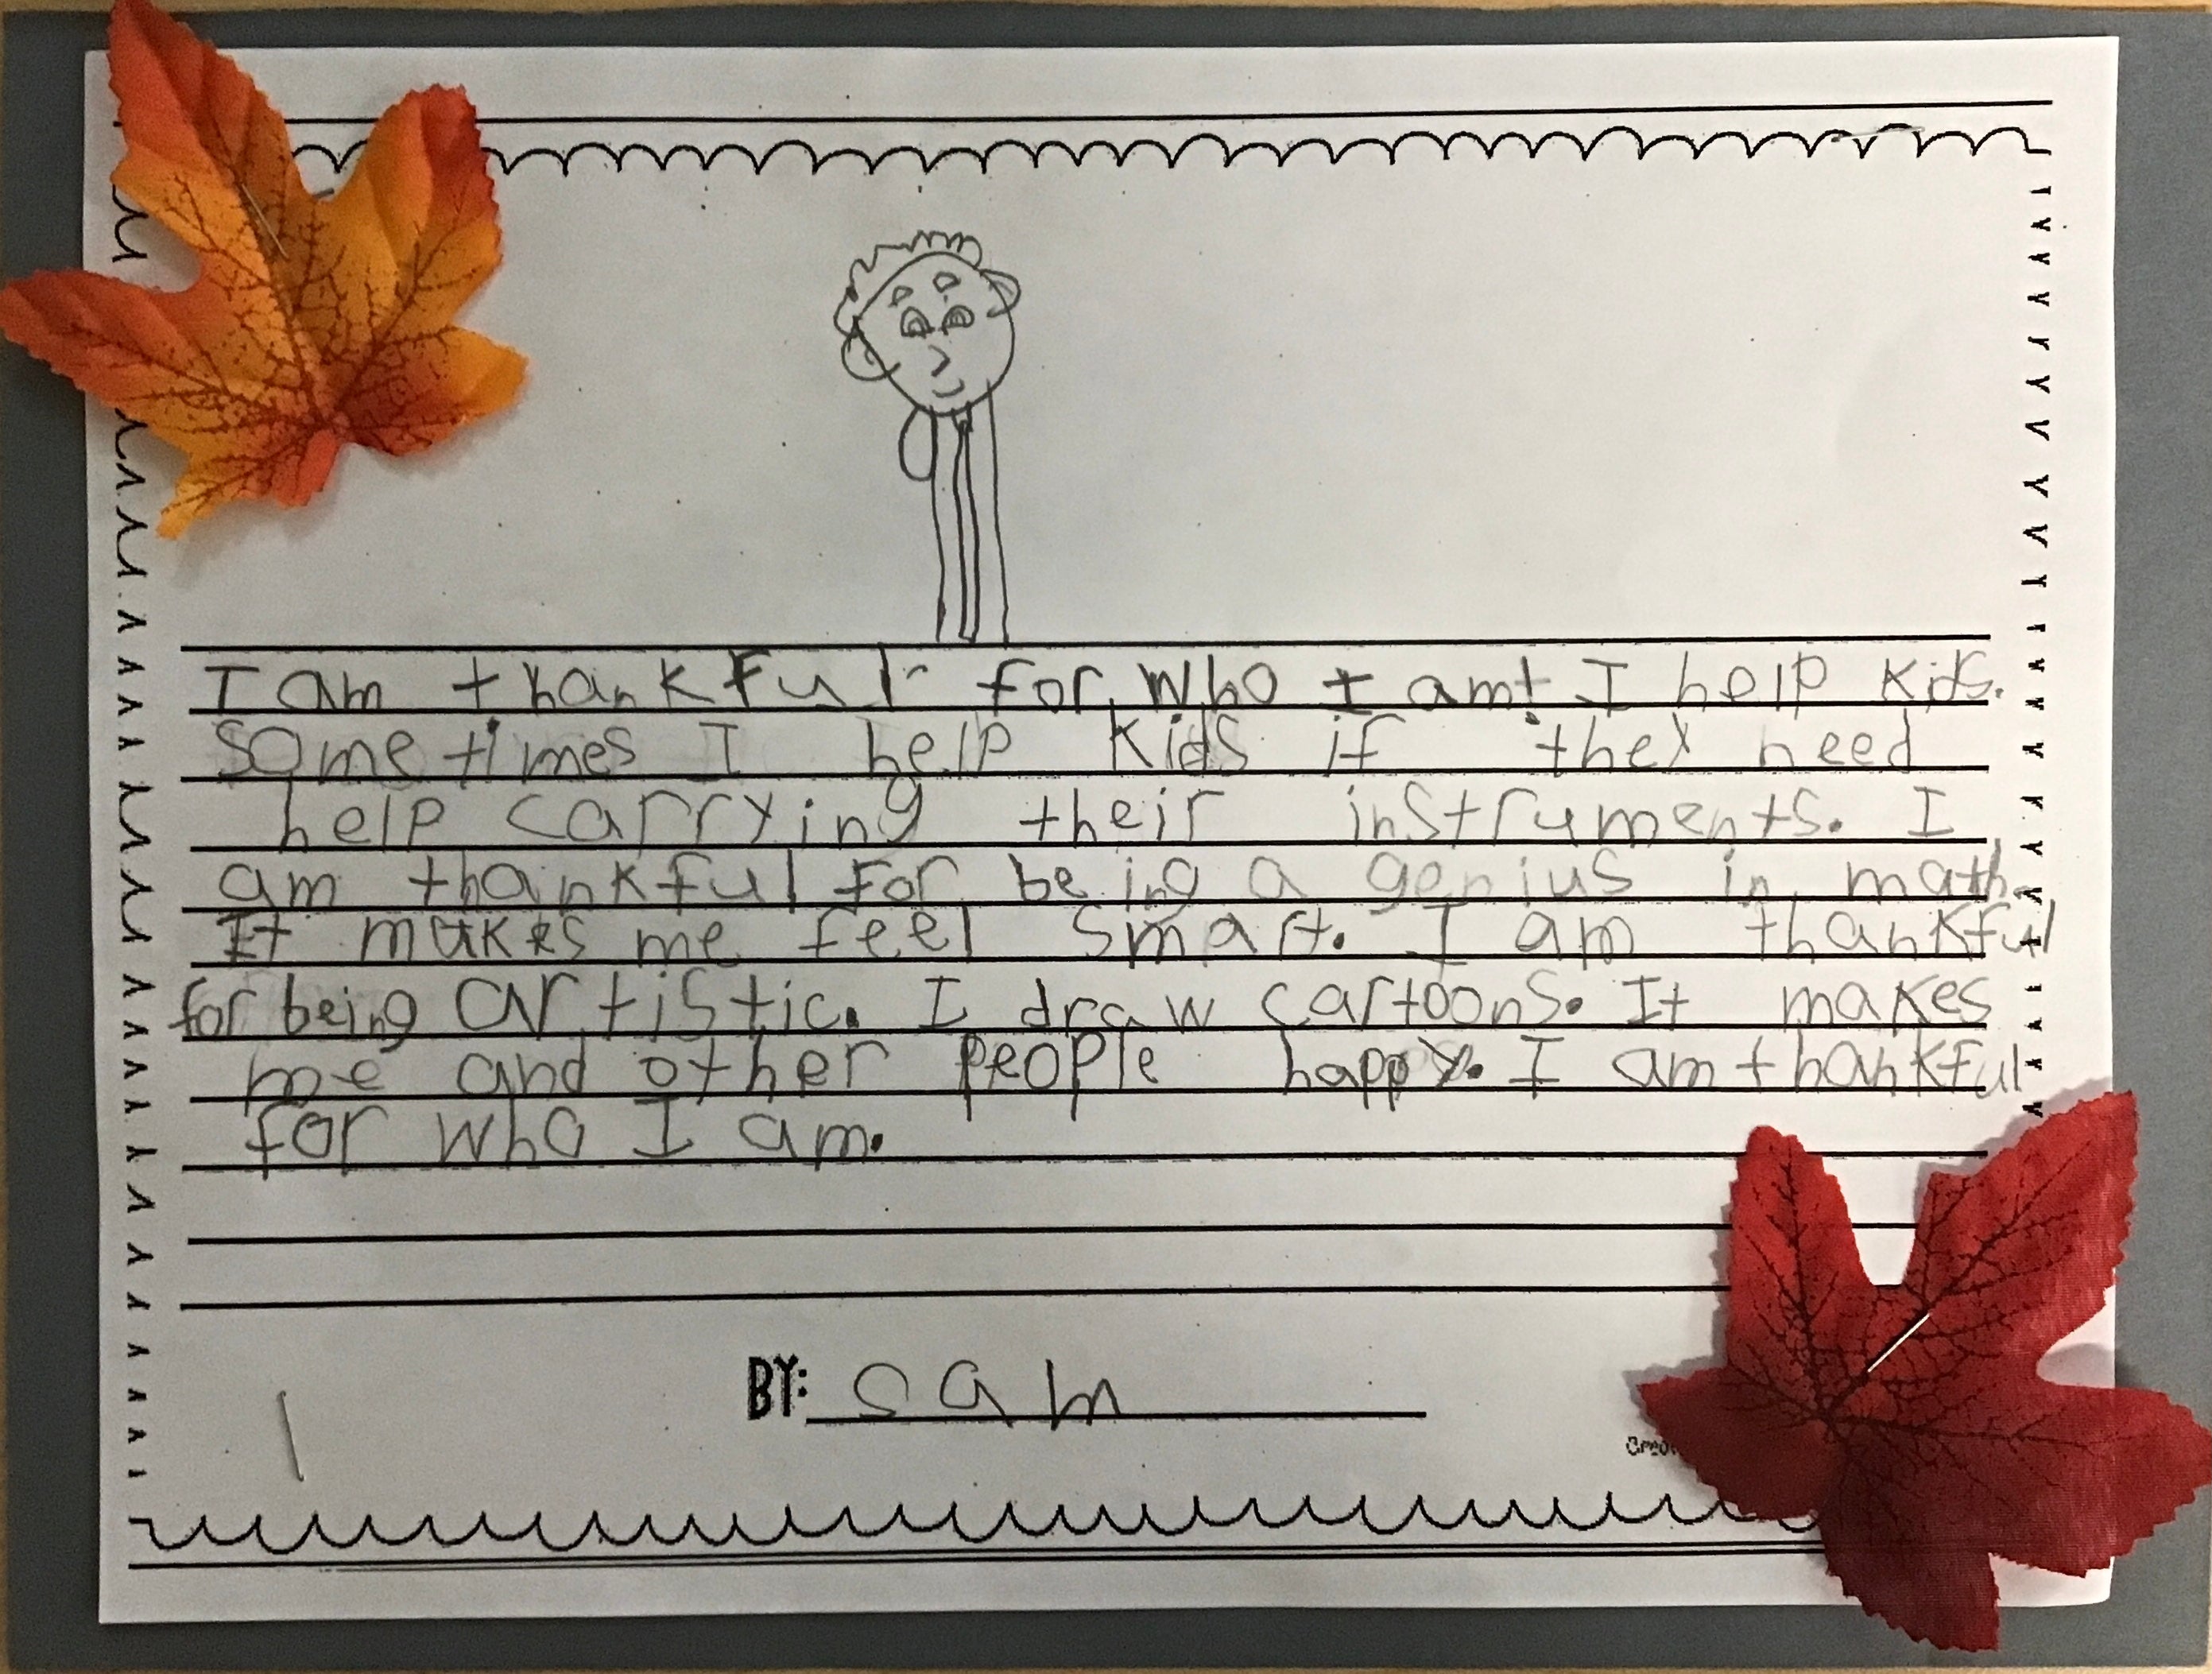 I am thankful for who I am! I help kids.
Sometimes I help kids if they need
help carrying their instruments. I
am thankful for being a genius in math.
It makes me feel smart. I am thankful
for being artistic. I draw cartoons. It makes
me and other people happy. I am thankful
for who I am.
BY: sam